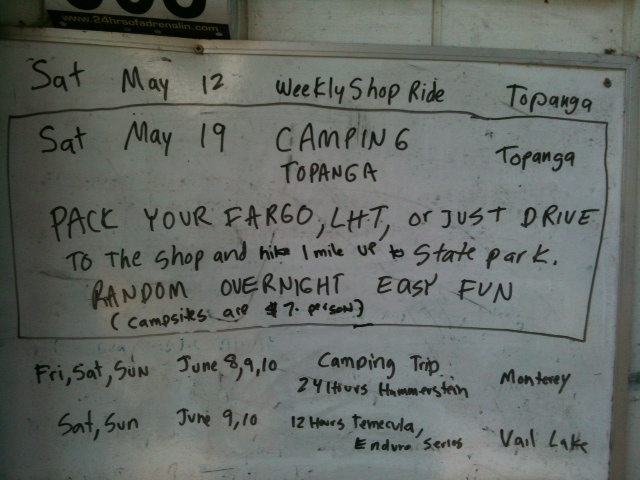 www.24hrsofadrenalin.com
Sat May 12 Weekly Shop Ride Topanga
Sat May 19 CAMPING Topanga
TOPANGA
PACK YOUR FARGO, LHT, or JUST DRIVE
TO The Shop and hike 1 mile up to State park.
RANDOM OVERNIGHT EASY FUN
(Campsites are $7. person)
Fri, Sat, Sun June 8,9,10 Camping Trip Monterey
24 Hours Hammerstein
Sat, Sun June 9,10 12 Hours Temecula, Vail Lake
Enduro Series